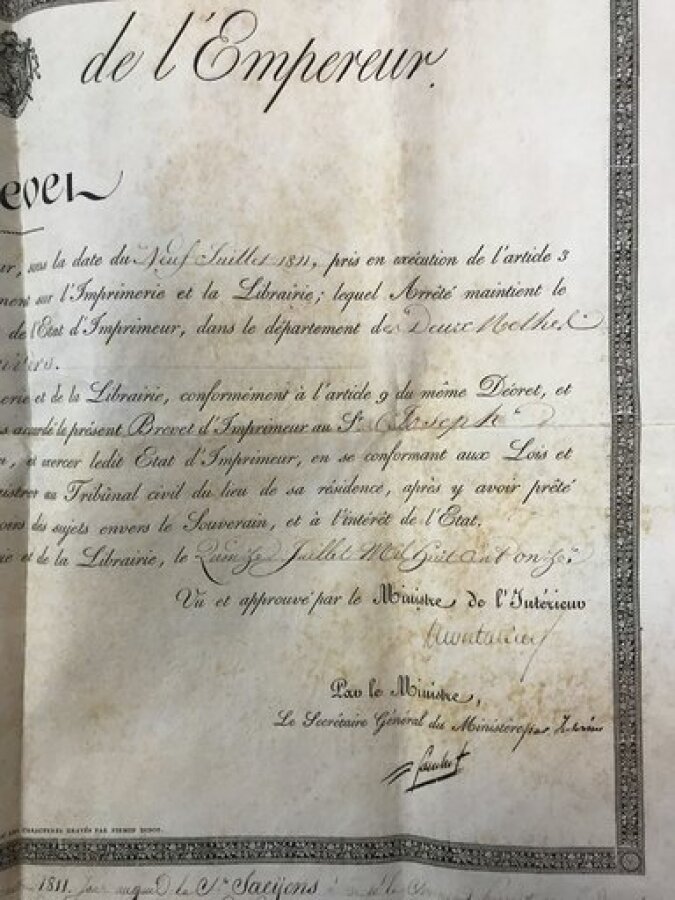 de l'Empereur.
evet
ur, sous la date du Neuf Juillet 1811, pris en exécution de l'article 3
ment sur l'Imprimerie et la Librairie; lequel Arrêté maintient le
de l'Etat d'Imprimeur, dans le département des Deux Nethes
erie et de la Librairie, conformément à l'article 9 du même Décret, et
s accordé le présent Brevet d'Imprimeur au Sr Joseph
n, et exercer ledit Etat d'Imprimeur, en se conformant aux Lois et
gistrer au Tribunal civil du lieu de sa résidence, après y avoir prêté
voirs des sujets envers le Souverain, et à l'intérêt de l'Etat.
ie et de la Librairie, le Quinze Juillet Mil huit cent onze.
Vu et approuvé par le Ministre de l'Intérieur
Montalivet
Par le Ministre,
Le Secrétaire Général du Ministère par Intérim
LES CARACTERES GRAVÉS PAR FIRMIN DIDOT.
1811. Sr Saeijens